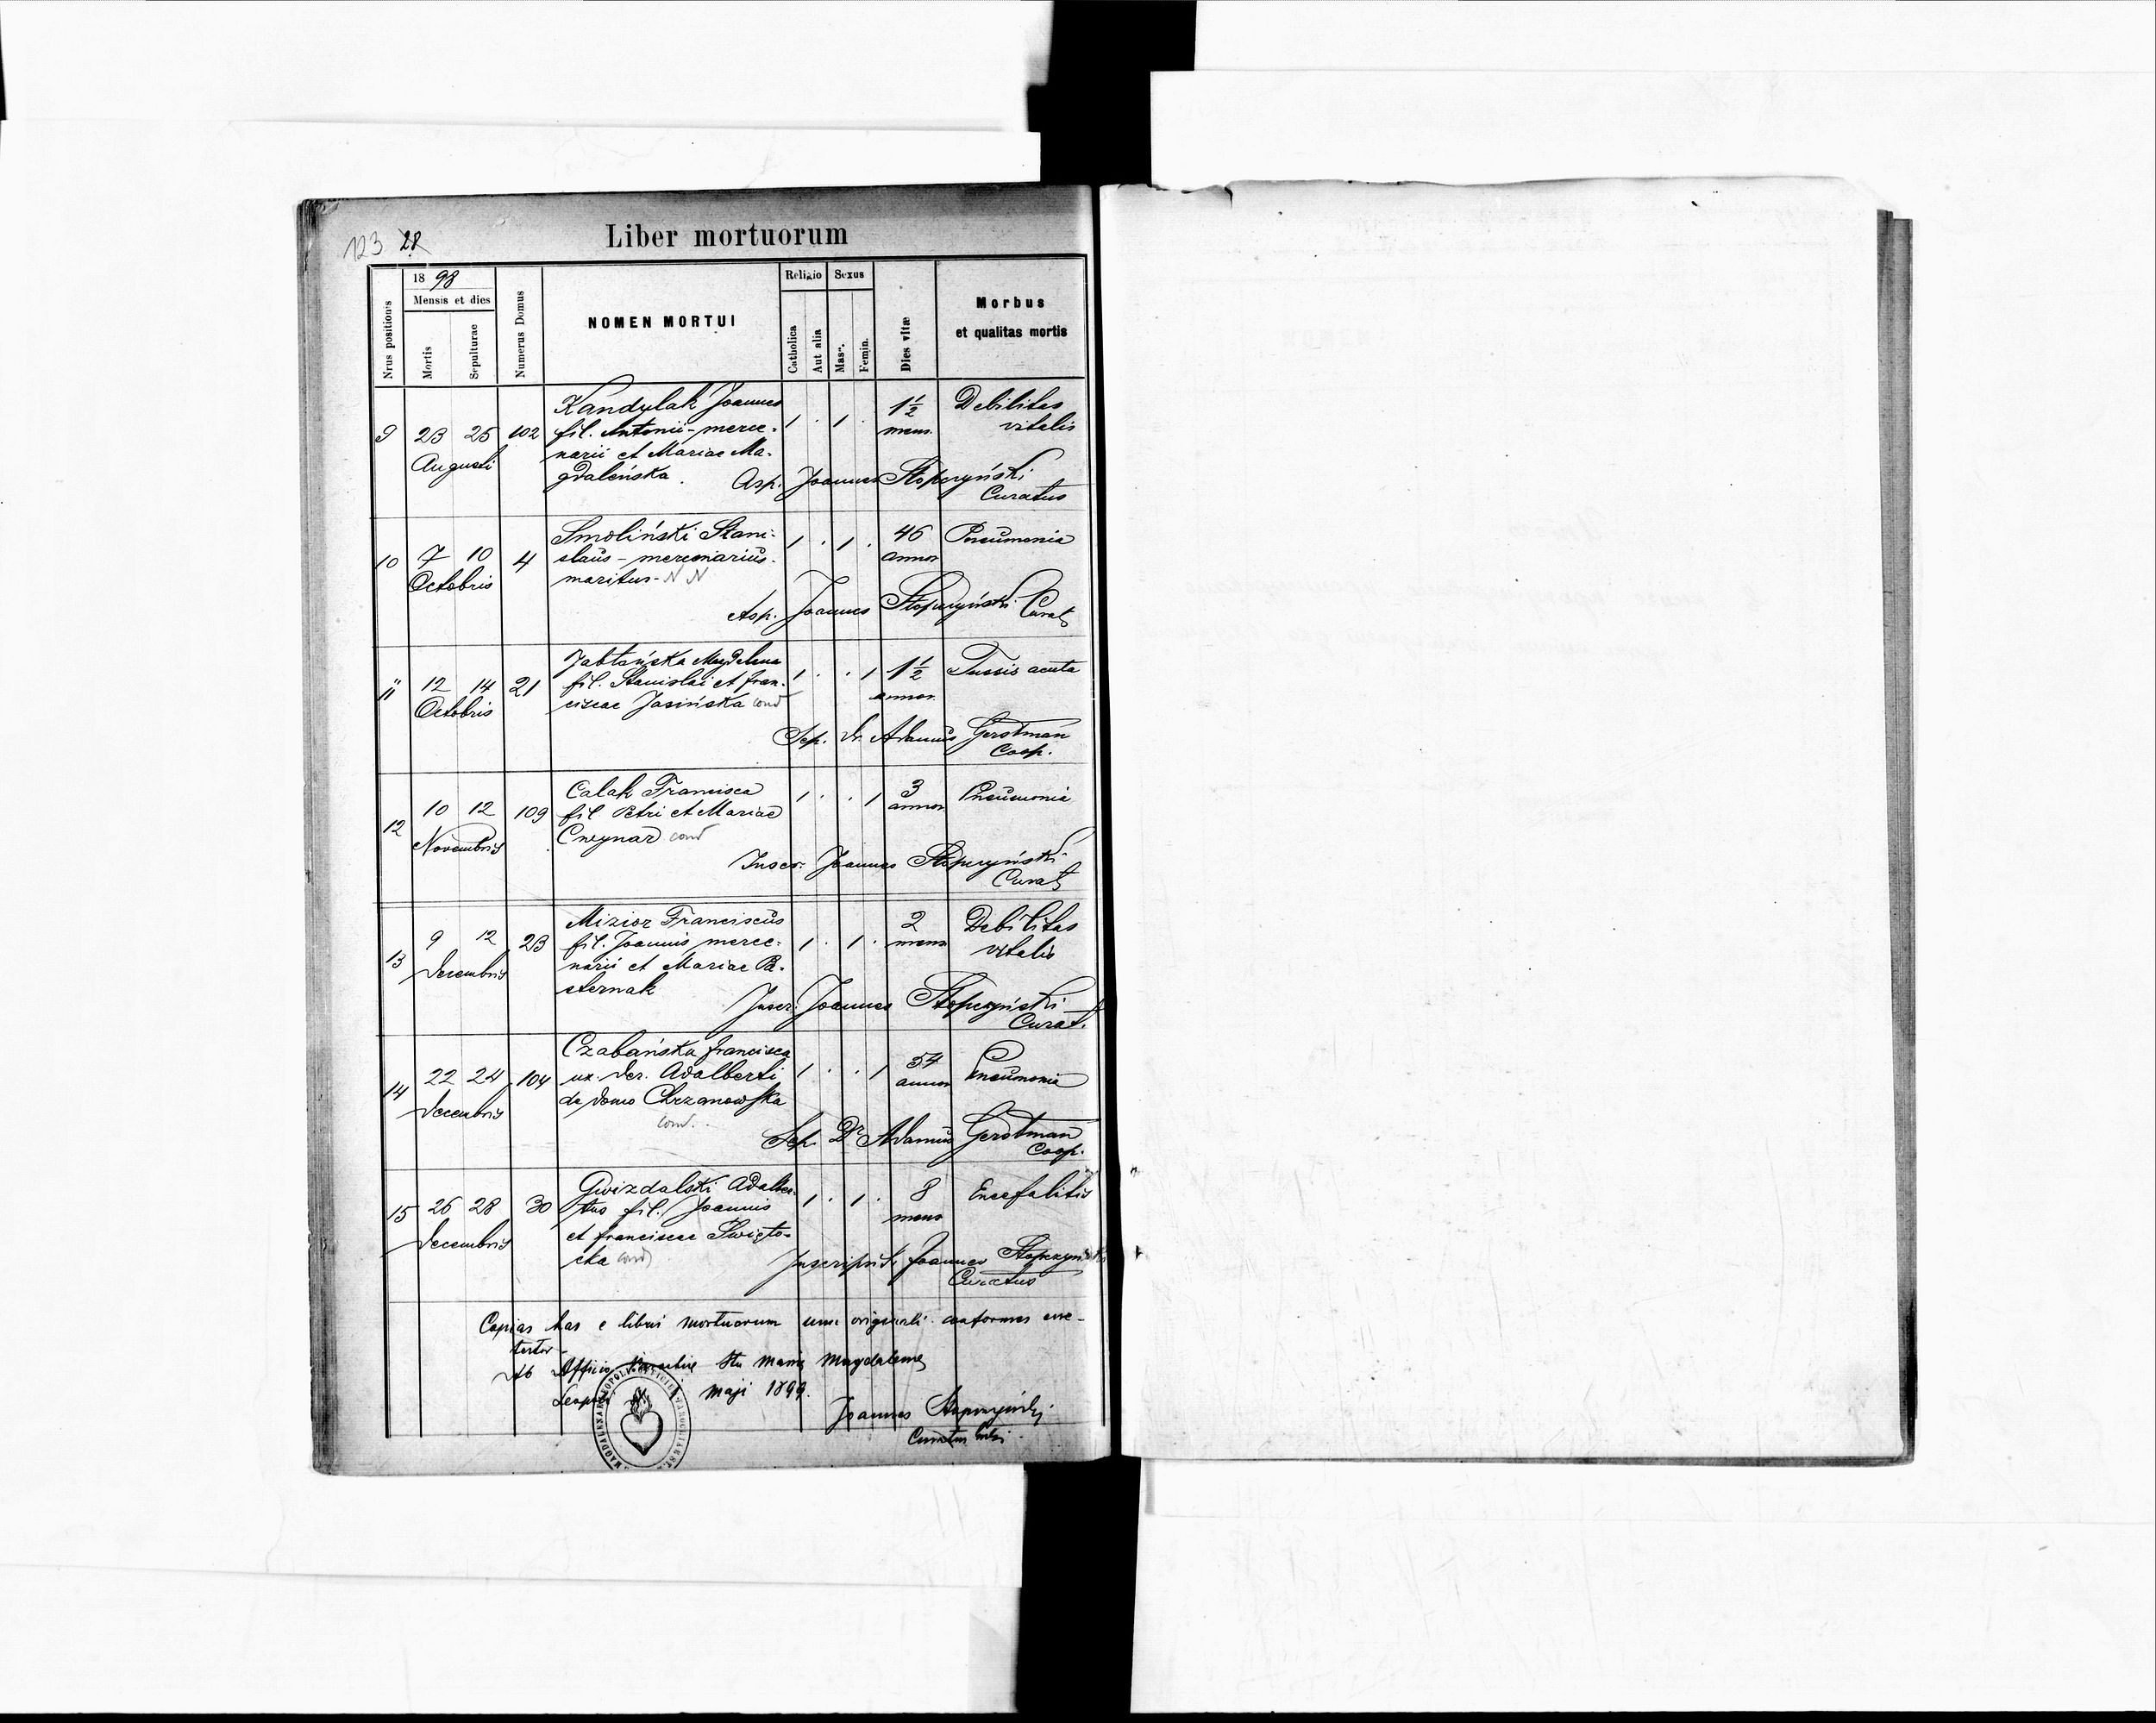 123 28
Liber mortuorum
Nrus positionis
18 98
Mensis et dies
Mortis
Sepulturae
Numerus Domus
NOMEN MORTUI
Religio
Catholica
Aut alia
Sexus
Masc.
Femin.
Dies vitæ
Morbus
et qualitas mortis
9 23 25 102 Kandylak Joannes 1 . 1 . 1½ Debilitas
Augusti fil. Antonii - merce- mens. vitalis
narii et Mariae Ma-
gdaleńska.
Asp. Joannes Stopczyński
Curatus
10 7 10 4 Smoliński Stani- 1 . 1 . 46 Pneumonia
Octobris slaus - mercenarius - annor
maritus - N N
Asp. Joannes Stopczyński Curat
11 12 14 21 Jabłońska Magdalena 1 . . 1 1½ Tussis acuta
Octobris fil. Stanislai et Fran- annor.
ciscae Jasińska cond
Sep. Dr. Adamus Gerstman
Coop.
12 10 12 109 Calak Francisca 1 . . 1 3 Pneumonia
Novembris fil Petri et Mariae annor
Cwynar cond
Inscr. Joannes Stopczyński
Curat
13 9 12 23 Mizior Franciscus 1 . 1 . 2 Debilitas
Decembris fil. Joannis merce- mens vitalis
narii et Mariae Pa-
sternak
Inscr. Joannes Stopczyński
Curat.
14 22 24 104 Czabańska Francisca 1 . . 1 54 Pneumonia
Decembris ux. der. Adalberti annor
de domo Chrzanowska
cond.
Sep. Dr Adamus Gerstman
Coop.
15 26 28 30 Gwizdalski Adalber- 1 . 1 . 8 Encefalitis
Decembris tus fil. Joannis mens
et Franciscae Święto-
cka cond
Inscripsit Joannes Stopczyński
Curatus
Copias has e libri mortuorum cum originali conformes
Ab Officio Stae Mariae Magdalenae
Leopoli maji 1899.
Joannes Stopczyński
Curatus